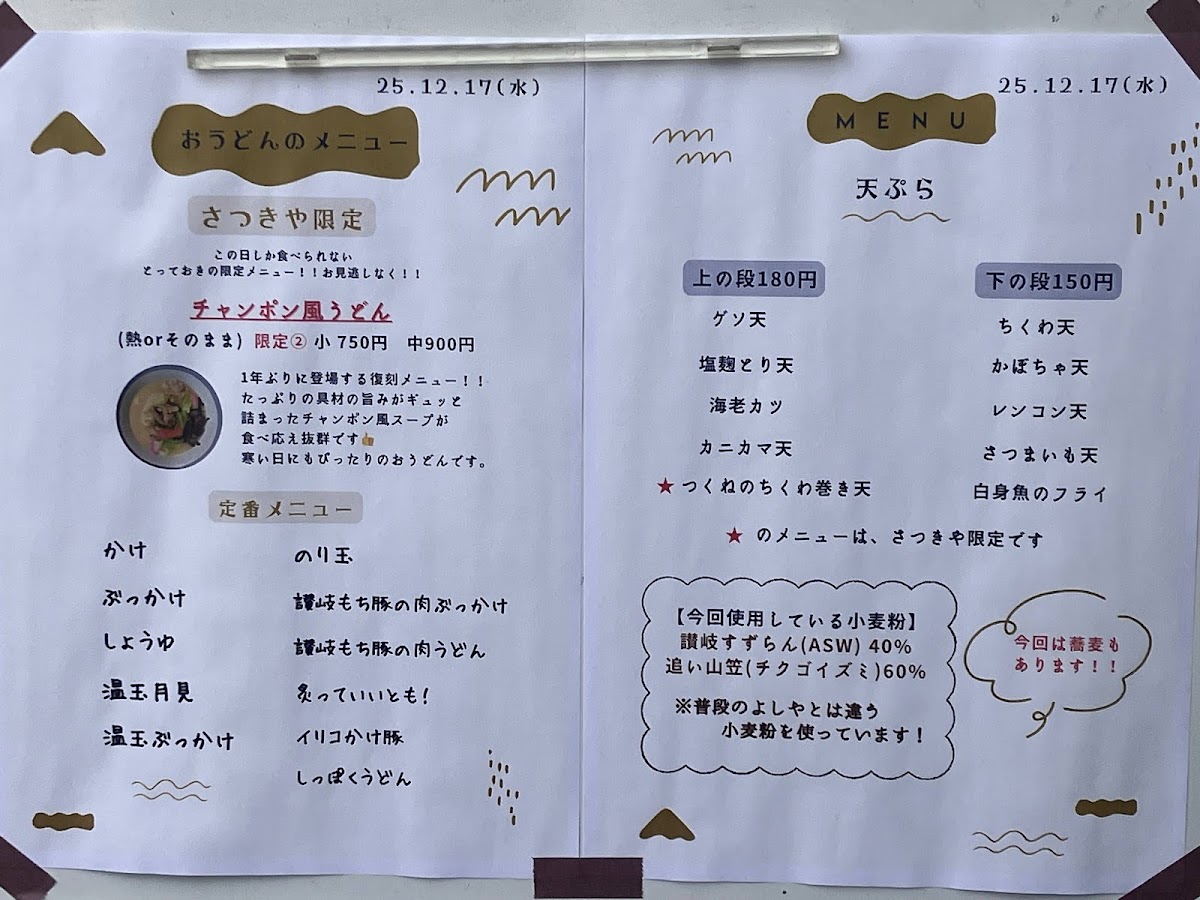 25.12.17(水)
おうどんのメニュー
さつきや限定
この日しか食べられない
とっておきの限定メニュー!!お見逃しなく!!
チャンポン風うどん
(熱orそのまま) 限定② 小 750円 中900円
1年ぶりに登場する復刻メニュー!!
たっぷりの具材の旨みがギュッと
詰まったチャンポン風スープが
食べ応え抜群です👍
寒い日にもぴったりのおうどんです。
定番メニュー
かけ
ぶっかけ
しょうゆ
温玉月見
温玉ぶっかけ
のり玉
讃岐もち豚の肉ぶっかけ
讃岐もち豚の肉うどん
炙っていいとも!
イリコかけ豚
しっぽくうどん
25.12.17(水)
MENU
天ぷら
上の段180円
ゲソ天
塩麹とり天
海老カツ
カニカマ天
★つくねのちくわ巻き天
下の段150円
ちくわ天
かぼちゃ天
レンコン天
さつまいも天
白身魚のフライ
★ のメニューは、さつきや限定です
【今回使用している小麦粉】
讃岐すずらん(ASW) 40%
追い山笠(チクゴイズミ)60%
※普段のよしやとは違う
小麦粉を使っています!
今回は蕎麦も
あります!!